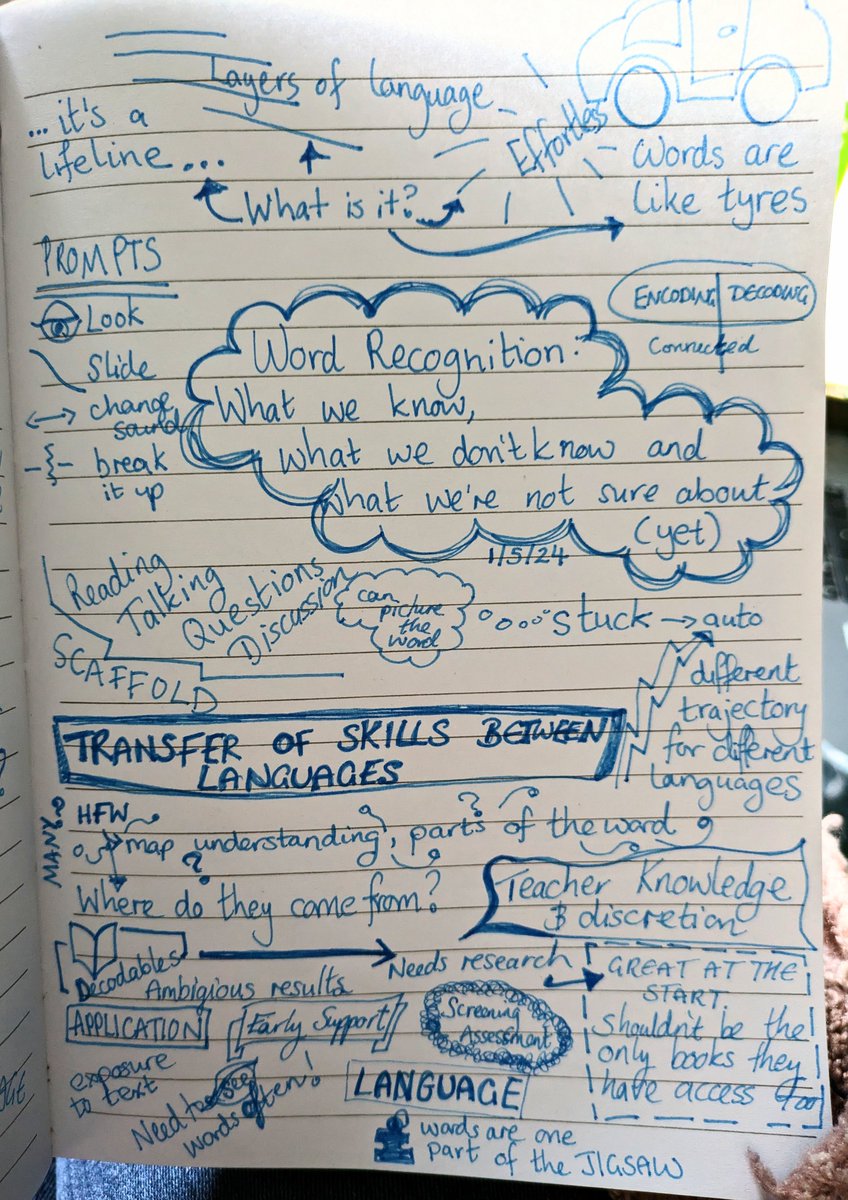 Layers of language
... it's a
lifeline...
Effortless
What is it?
Words are
like tyres
PROMPTS
Look
Slide
change
sound
break
it up
ENCODING DECODING
Connected
Word Recognition:
What we know,
what we don't know and
what we're not sure about
(yet)
1/5/24
Reading
Talking
Questions
Discussion
SCAFFOLD
can
picture
the
word
stuck → auto
different
trajectory
for different
languages
TRANSFER OF SKILLS BETWEEN
LANGUAGES
MANY
HFW
map understanding, parts of the word
?
?
Where do they come from?
Teacher Knowledge
& discretion
Decodables
Ambigious results
Needs research
GREAT AT THE
START.
Shouldn't be the
only books they
have access too
APPLICATION
Early Support
Screening
Assessment
exposure
to text
Need to see
words often!
LANGUAGE
words are one
part of the JIGSAW